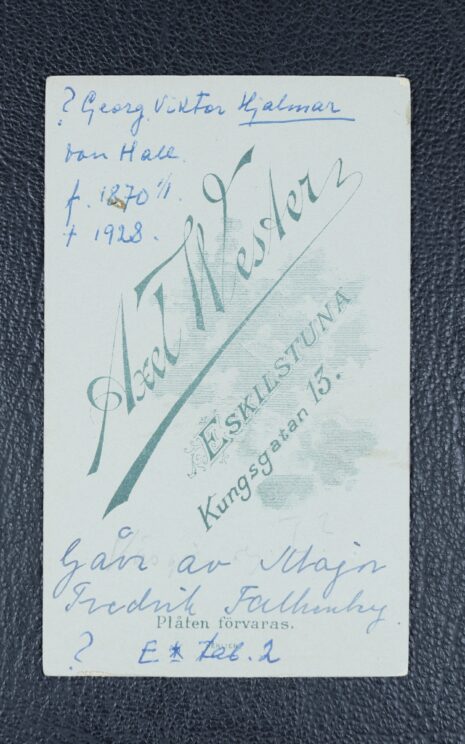 ? Georg Viktor Hjalmar
von Hall.
f. 1870 1/1.
† 1928.
Axel Wester
ESKILSTUNA
Kungsgatan 13.
Gåva av Major
Fredrik Falkenberg
Plåten förvaras.
? E * Tab. 2